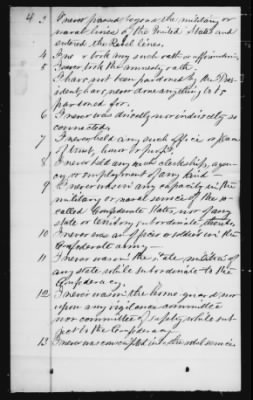 4 3 I never passed beyond the military or
naval lines of the United States and
entered the Rebel lines.
4 I no took any such oath or affirmation.
5 I never took the amnesty oath.
I have not been pardoned by the Pres-
ident, have never done anything to be
pardoned for.
6 I never was directly nor indirectly so
connected.
7 I never held any such office or place
of trust, honor or profit.
8 I never held any such clerkship, agen-
cy, or employment of any kind —
9 I never was in any capacity in the
military or naval service of the so
called Confederate States, nor of any
state or territory subordinate thereto.
10 I never was an officer or soldier in the
Confederate army —
11 I never was in the state militia of
any state while subordinate to the
Confederacy.
12 I never was in the home guard nor
upon any vigilance committee
nor committee of safety while sub-
ject to the Confederacy
13 I never was conscripted into the rebel service